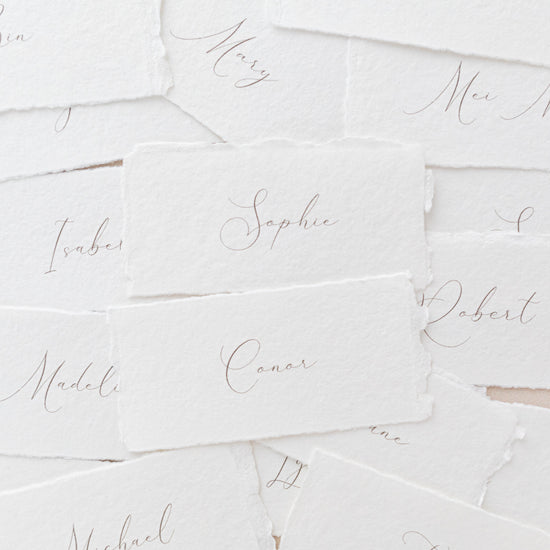 Mary
Mei
Sophie
Isabe
Robert
Madeli
Conor
ane
Michael